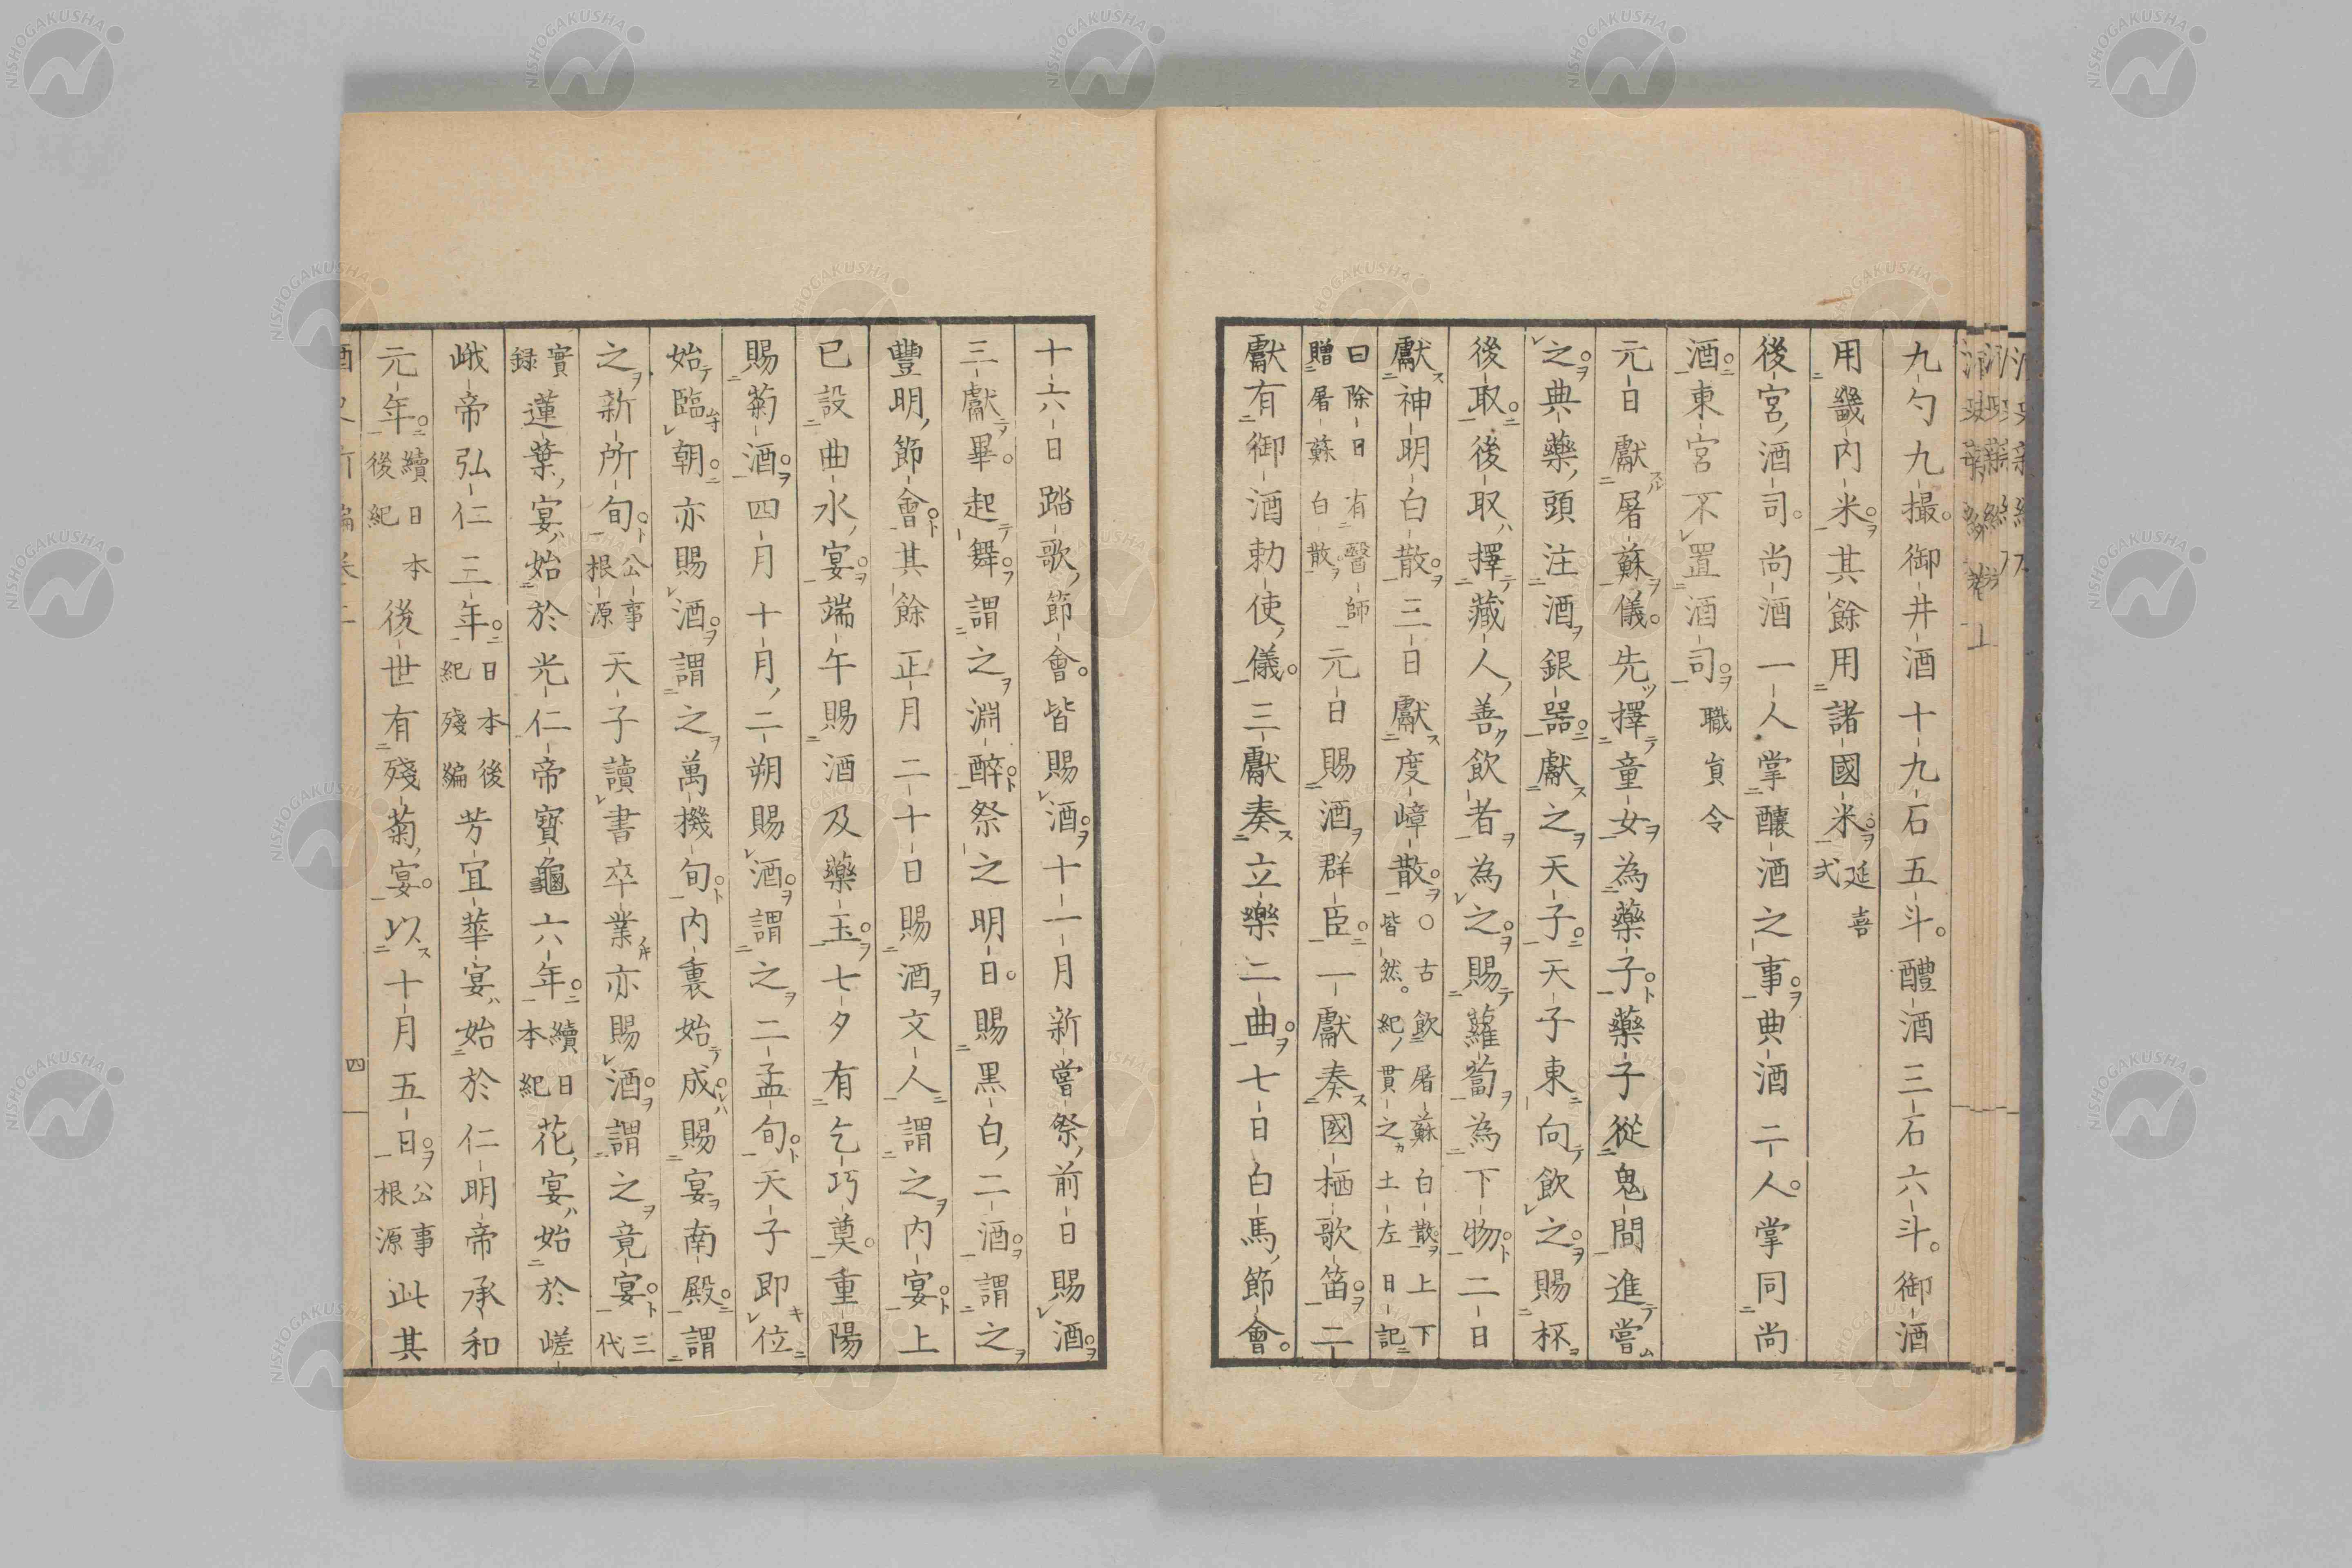 九勺九撮御井酒十九石五斗醴酒三石六斗御酒
用畿内米其餘用諸國米延喜式
後宮酒司尚酒一人掌釀酒之事典酒二人掌同尚
酒東宮不置酒司職員令
元日獻屠蘇儀先擇童女為藥子藥子從鬼間進嘗
之典藥頭注酒銀器獻之天子天子東向飲之賜杯
後取後取擇藏人善飲者為之賜蘿蔔為下物二日
獻神明白散三日獻度嶂散○古飲屠蘇白散上下皆然紀貫之土左日記
曰除日有醫師贈屠蘇白散元日賜酒群臣一獻奏國栖歌笛二
獻有御酒勅使儀三獻奏立樂二曲七日白馬節會
十六日踏歌節會皆賜酒十一月新嘗祭前日賜酒
三獻畢起舞謂之淵醉祭之明日賜黒白二酒謂之
豐明節會其餘正月二十日賜酒文人謂之内宴上
巳設曲水宴端午賜酒及藥玉七夕有乞巧奠重陽
賜菊酒四月十月二朔賜酒謂之二孟旬天子即位
始臨朝亦賜酒謂之萬機旬内裏始成賜宴南殿謂
之新所旬公事根源天子讀書卒業亦賜酒謂之竟宴三代
實録蓮葉宴始於光仁帝寶龜六年續日本紀花宴始於嵯
峨帝弘仁三年日本後紀殘編芳宜華宴始於仁明帝承和
元年續日本後紀後世有殘菊宴以十月五日公事根源此其
四
NISHOGAKUSHA